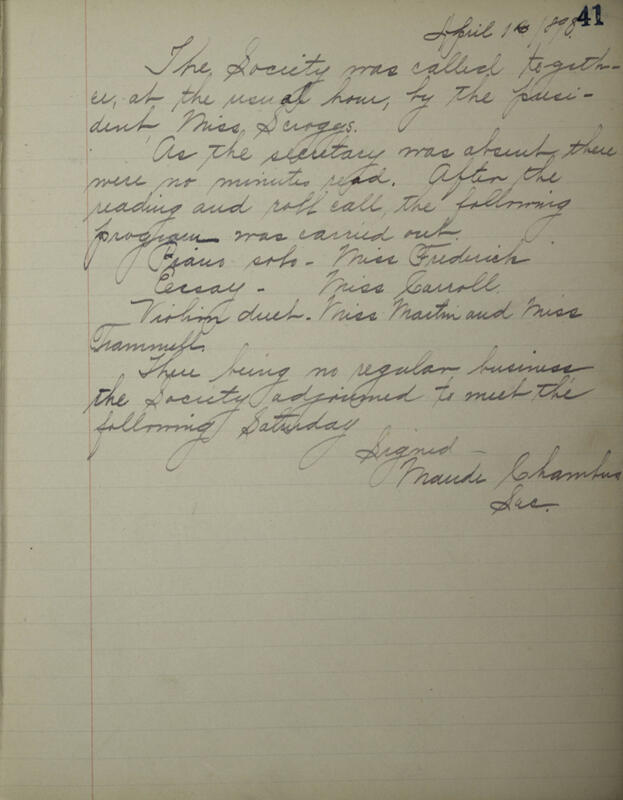 41
April 16 1898.
The Society was called togeth-
er, at the usual hour, by the presi-
dent, Miss Scroggs.
As the secretary was absent, there
were no minutes read. After the
reading and roll call, the following
program was carried out.
Piano solo - Miss Frederick
Essay - Miss Carroll.
Violin duet - Miss Martin and Miss
Trammell.
There being no regular business
the Society adjourned to meet the
following Saturday
Signed -
Maude Chambers
Sec.